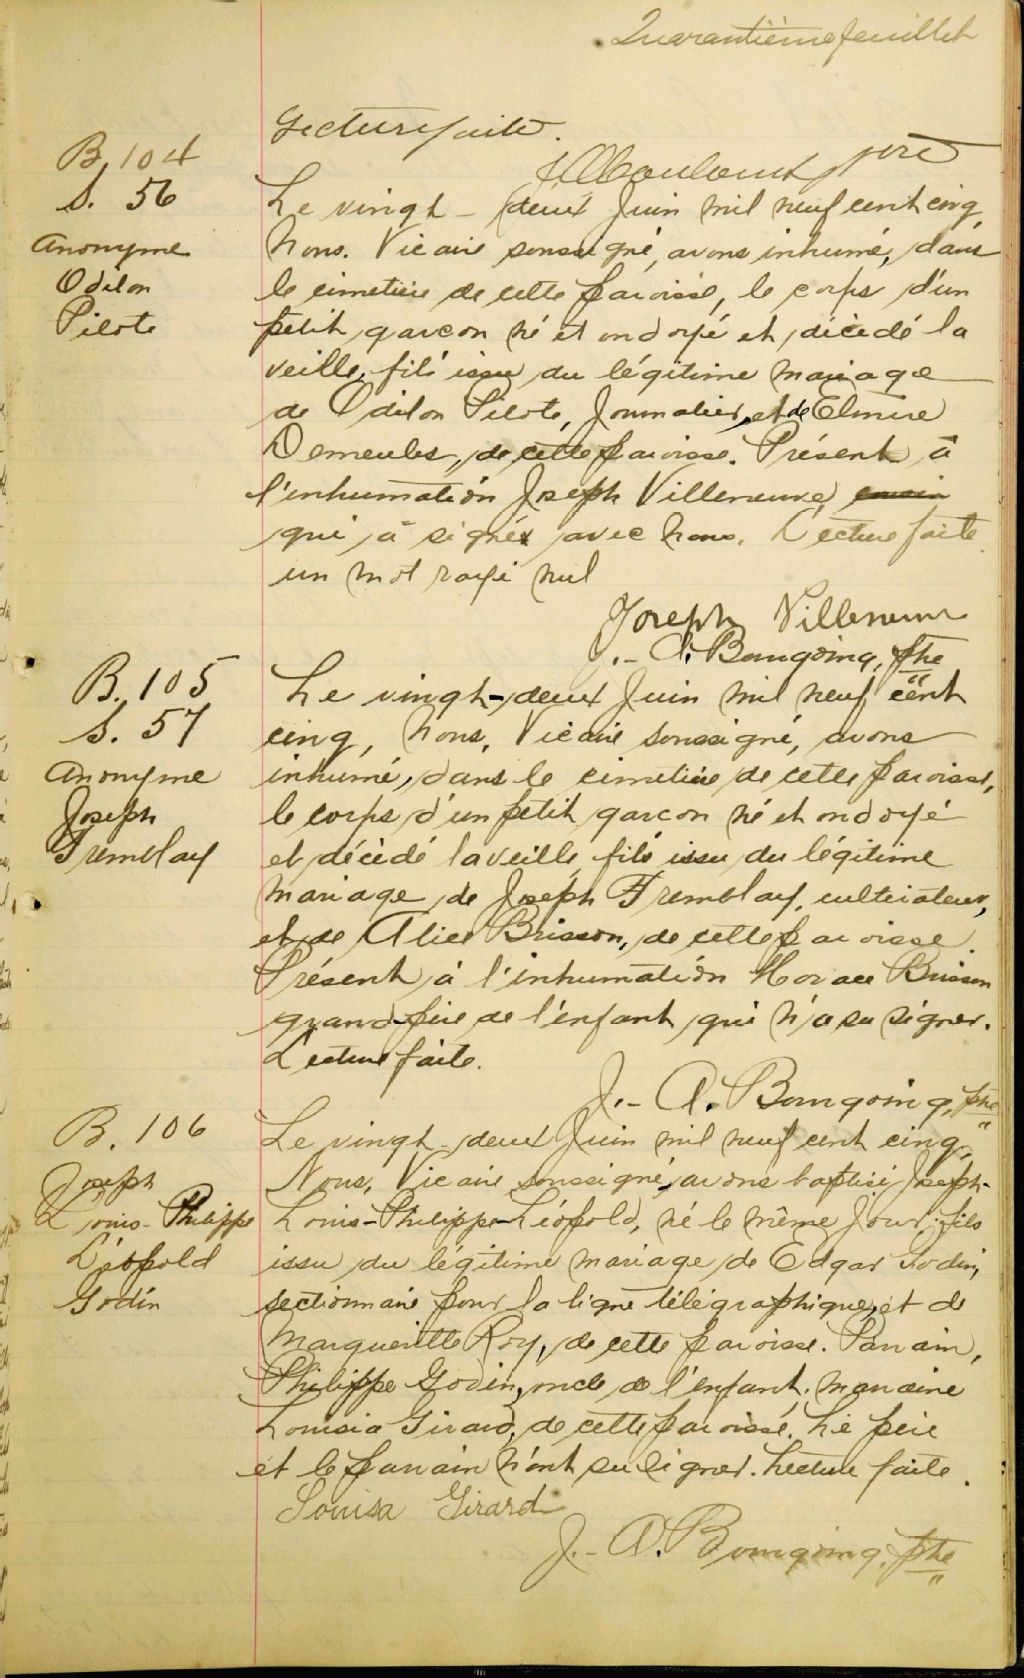 Quarantième feuillet
Lecture faite.
ptre
B. 104
S. 56
Anonyme
Odilon
Pilote
Le vingt-deux Juin mil neuf cent cinq,
Nous, Vicaire soussigné, avons inhumé, dans
le cimetière de cette paroisse, le corps d'un
petit garcon né et ondoyé et décédé la
veille, fils issu du légitime mariage
de Odilon Pilote, Journalier, et de Elmire
Demeules, de cette paroisse. Présent à
l'inhumation Joseph Villeneuve, cousin
qui a signé avec nous. Lecture faite
un mot rayé nul
Joseph Villeneuve
J.-A. Bourgoing, ptre
B. 105
S. 57
Anonyme
Joseph
Tremblay
Le vingt-deux Juin mil neuf cent
cinq, Nous, Vicaire soussigné, avons
inhumé, dans le cimetière de cette paroisse,
le corps d'un petit garcon né et ondoyé
et décédé la veille, fils issu du légitime
mariage de Joseph Tremblay, cultivateur,
et de Alice Brisson, de cette paroisse.
Présent à l'inhumation Horace Brisson
grand-père de l'enfant qui n'a su signer.
Lecture faite.
J.-A. Bourgoing, ptre
B. 106
Joseph
Louis-Philippe
Léopold
Godin
Le vingt-deux Juin mil neuf cent cinq,
Nous, Vicaire soussigné, avons baptisé Joseph-
Louis-Philippe-Léopold, né le même jour, fils
issu du légitime mariage de Edgar Godin,
sectionnaire pour la ligne télégraphique, et de
Margueritte Roy, de cette paroisse. Parrain,
Philippe Godin, oncle de l'enfant. marraine
Louisia Girard, de cette paroisse. Le père
et le parrain n'ont su signer. Lecture faite.
Louisa Girard
J.-A. Bourgoing, ptre